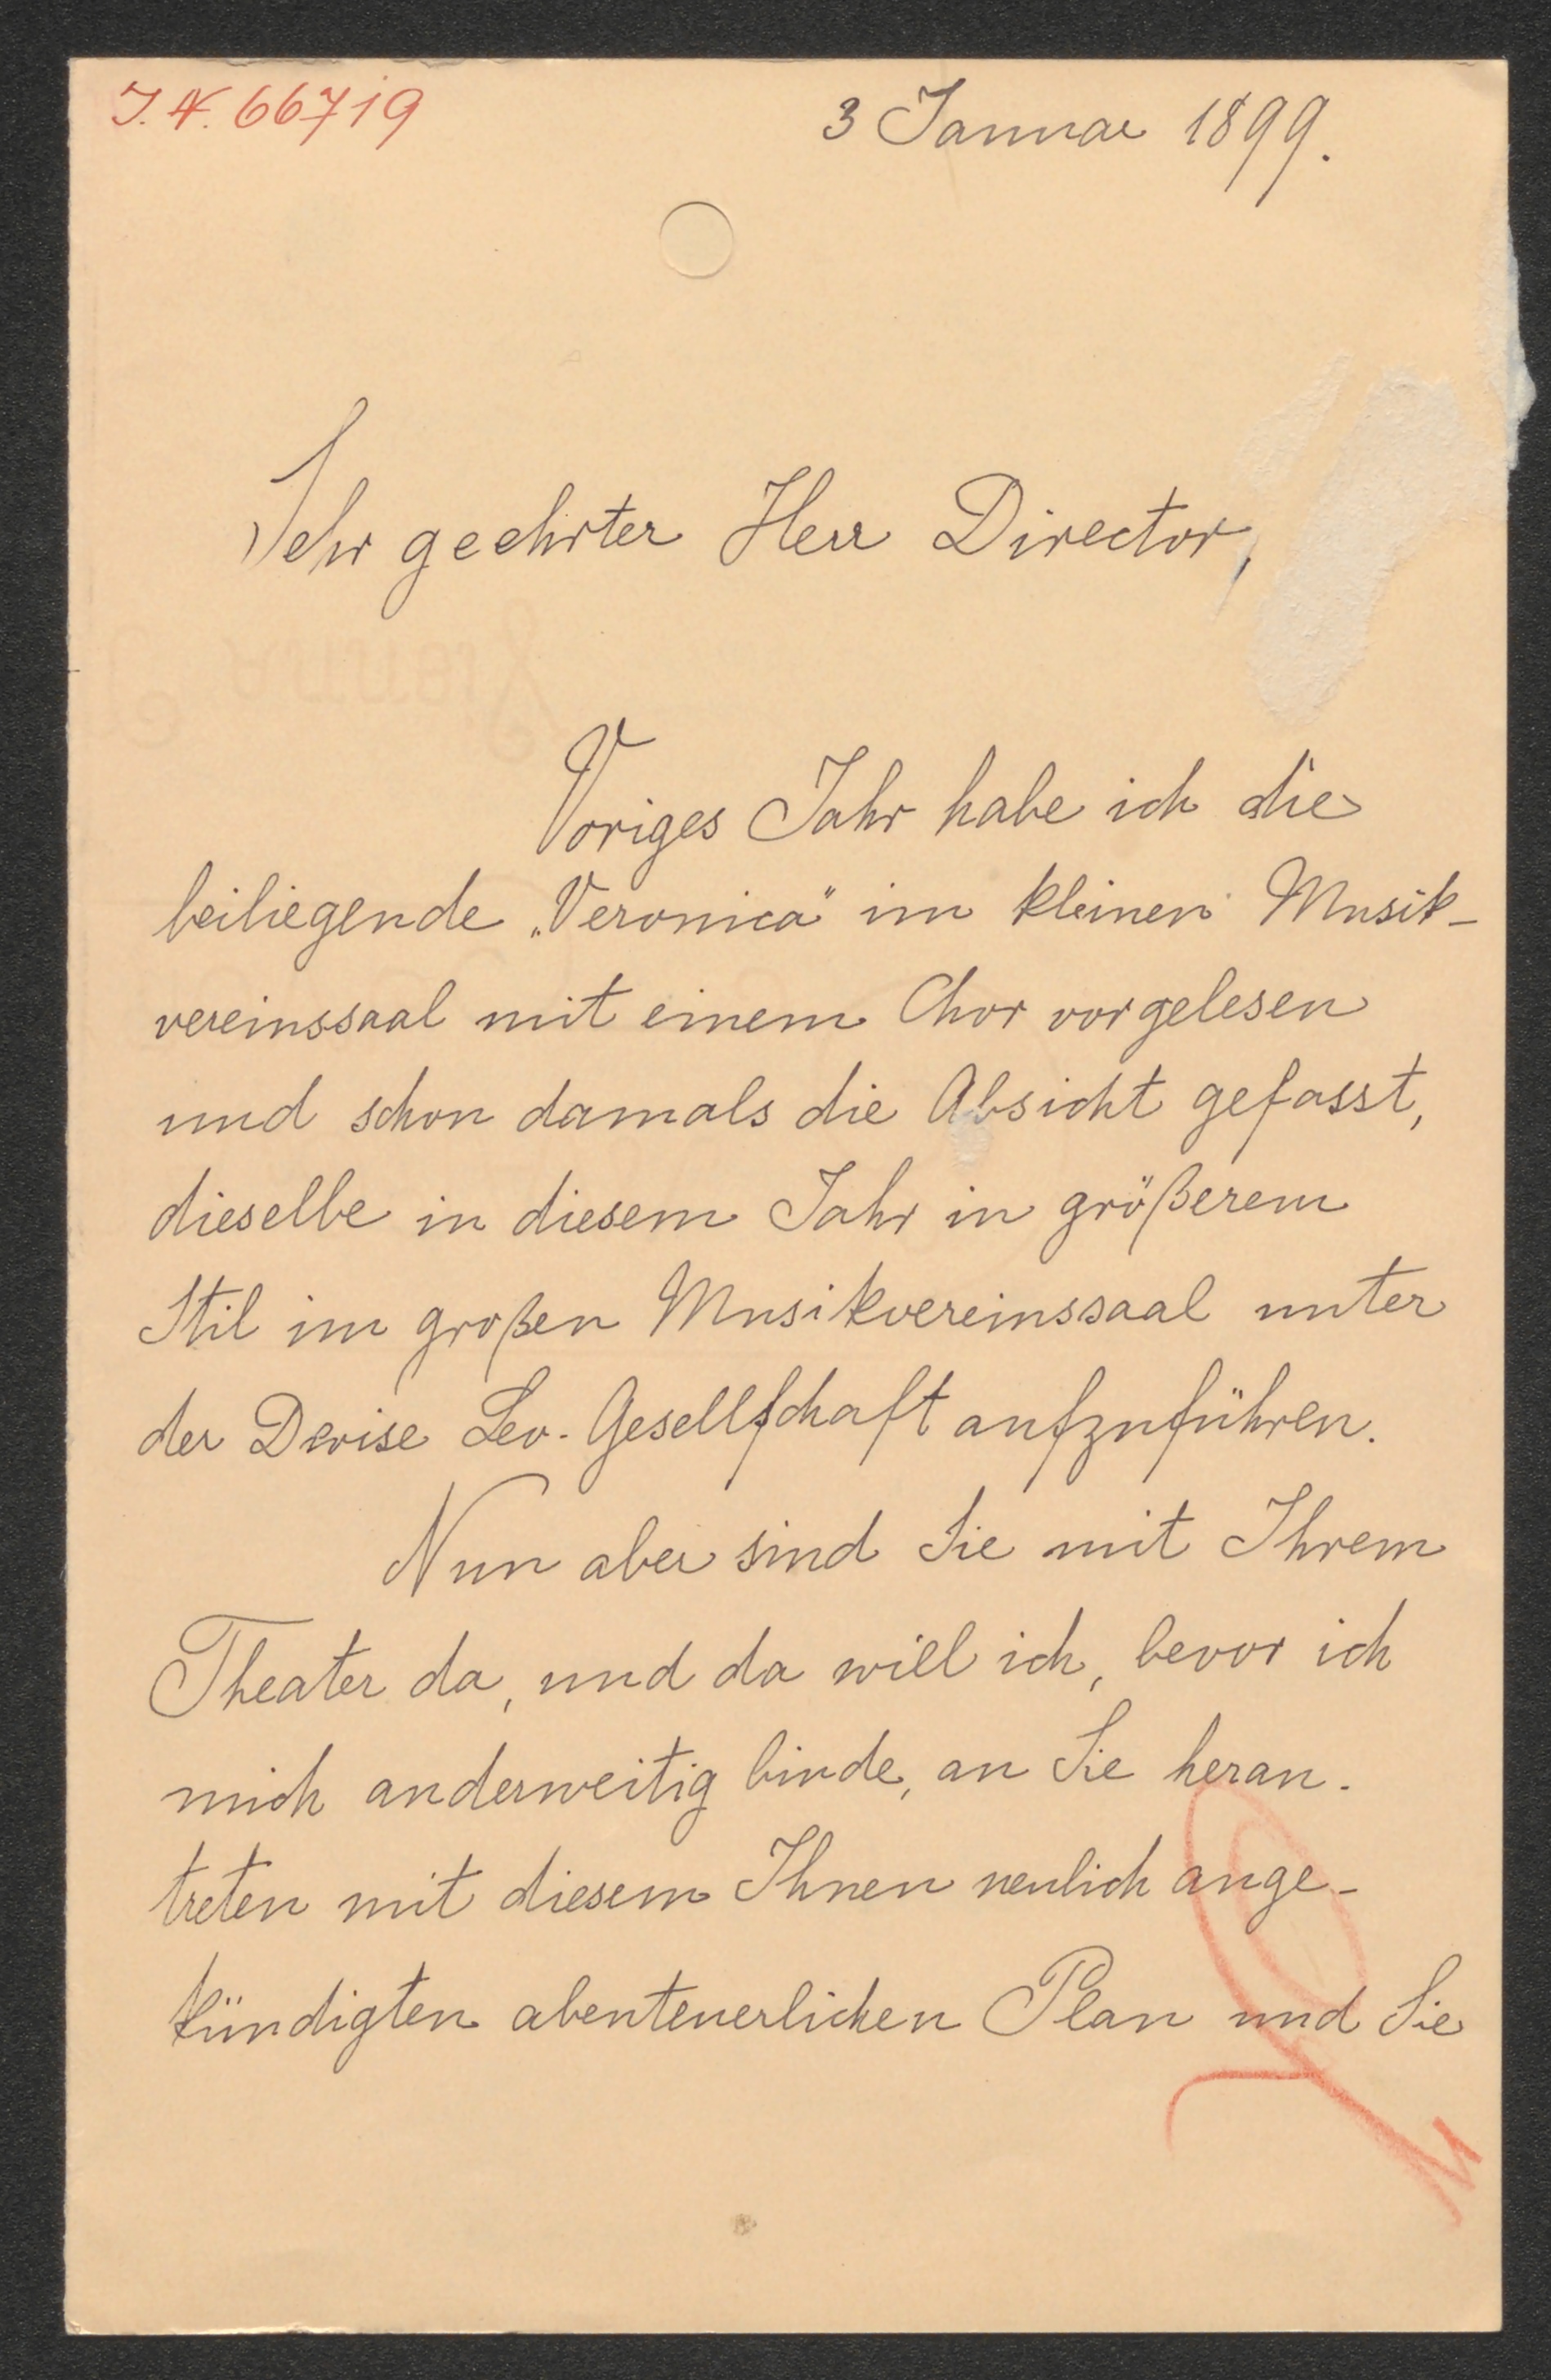 J. N. 66719
3 Januar 1899.
Sehr geehrter Herr Director,
Voriges Jahr habe ich die
beiliegende „Veronica" im kleinen Musik-
vereinssaal mit einem Chor vorgelesen
und schon damals die Absicht gefasst,
dieselbe in diesem Jahr in größerem
Stil im großen Musikvereinssaal unter
der Devise Leo-Gesellschaft aufzuführen.
Nun aber sind Sie mit Ihrem
Theater da, und da will ich, bevor ich
mich anderweitig binde, an Sie heran-
treten mit diesem Ihnen neulich ange-
kündigten abenteuerlichen Plan und Sie